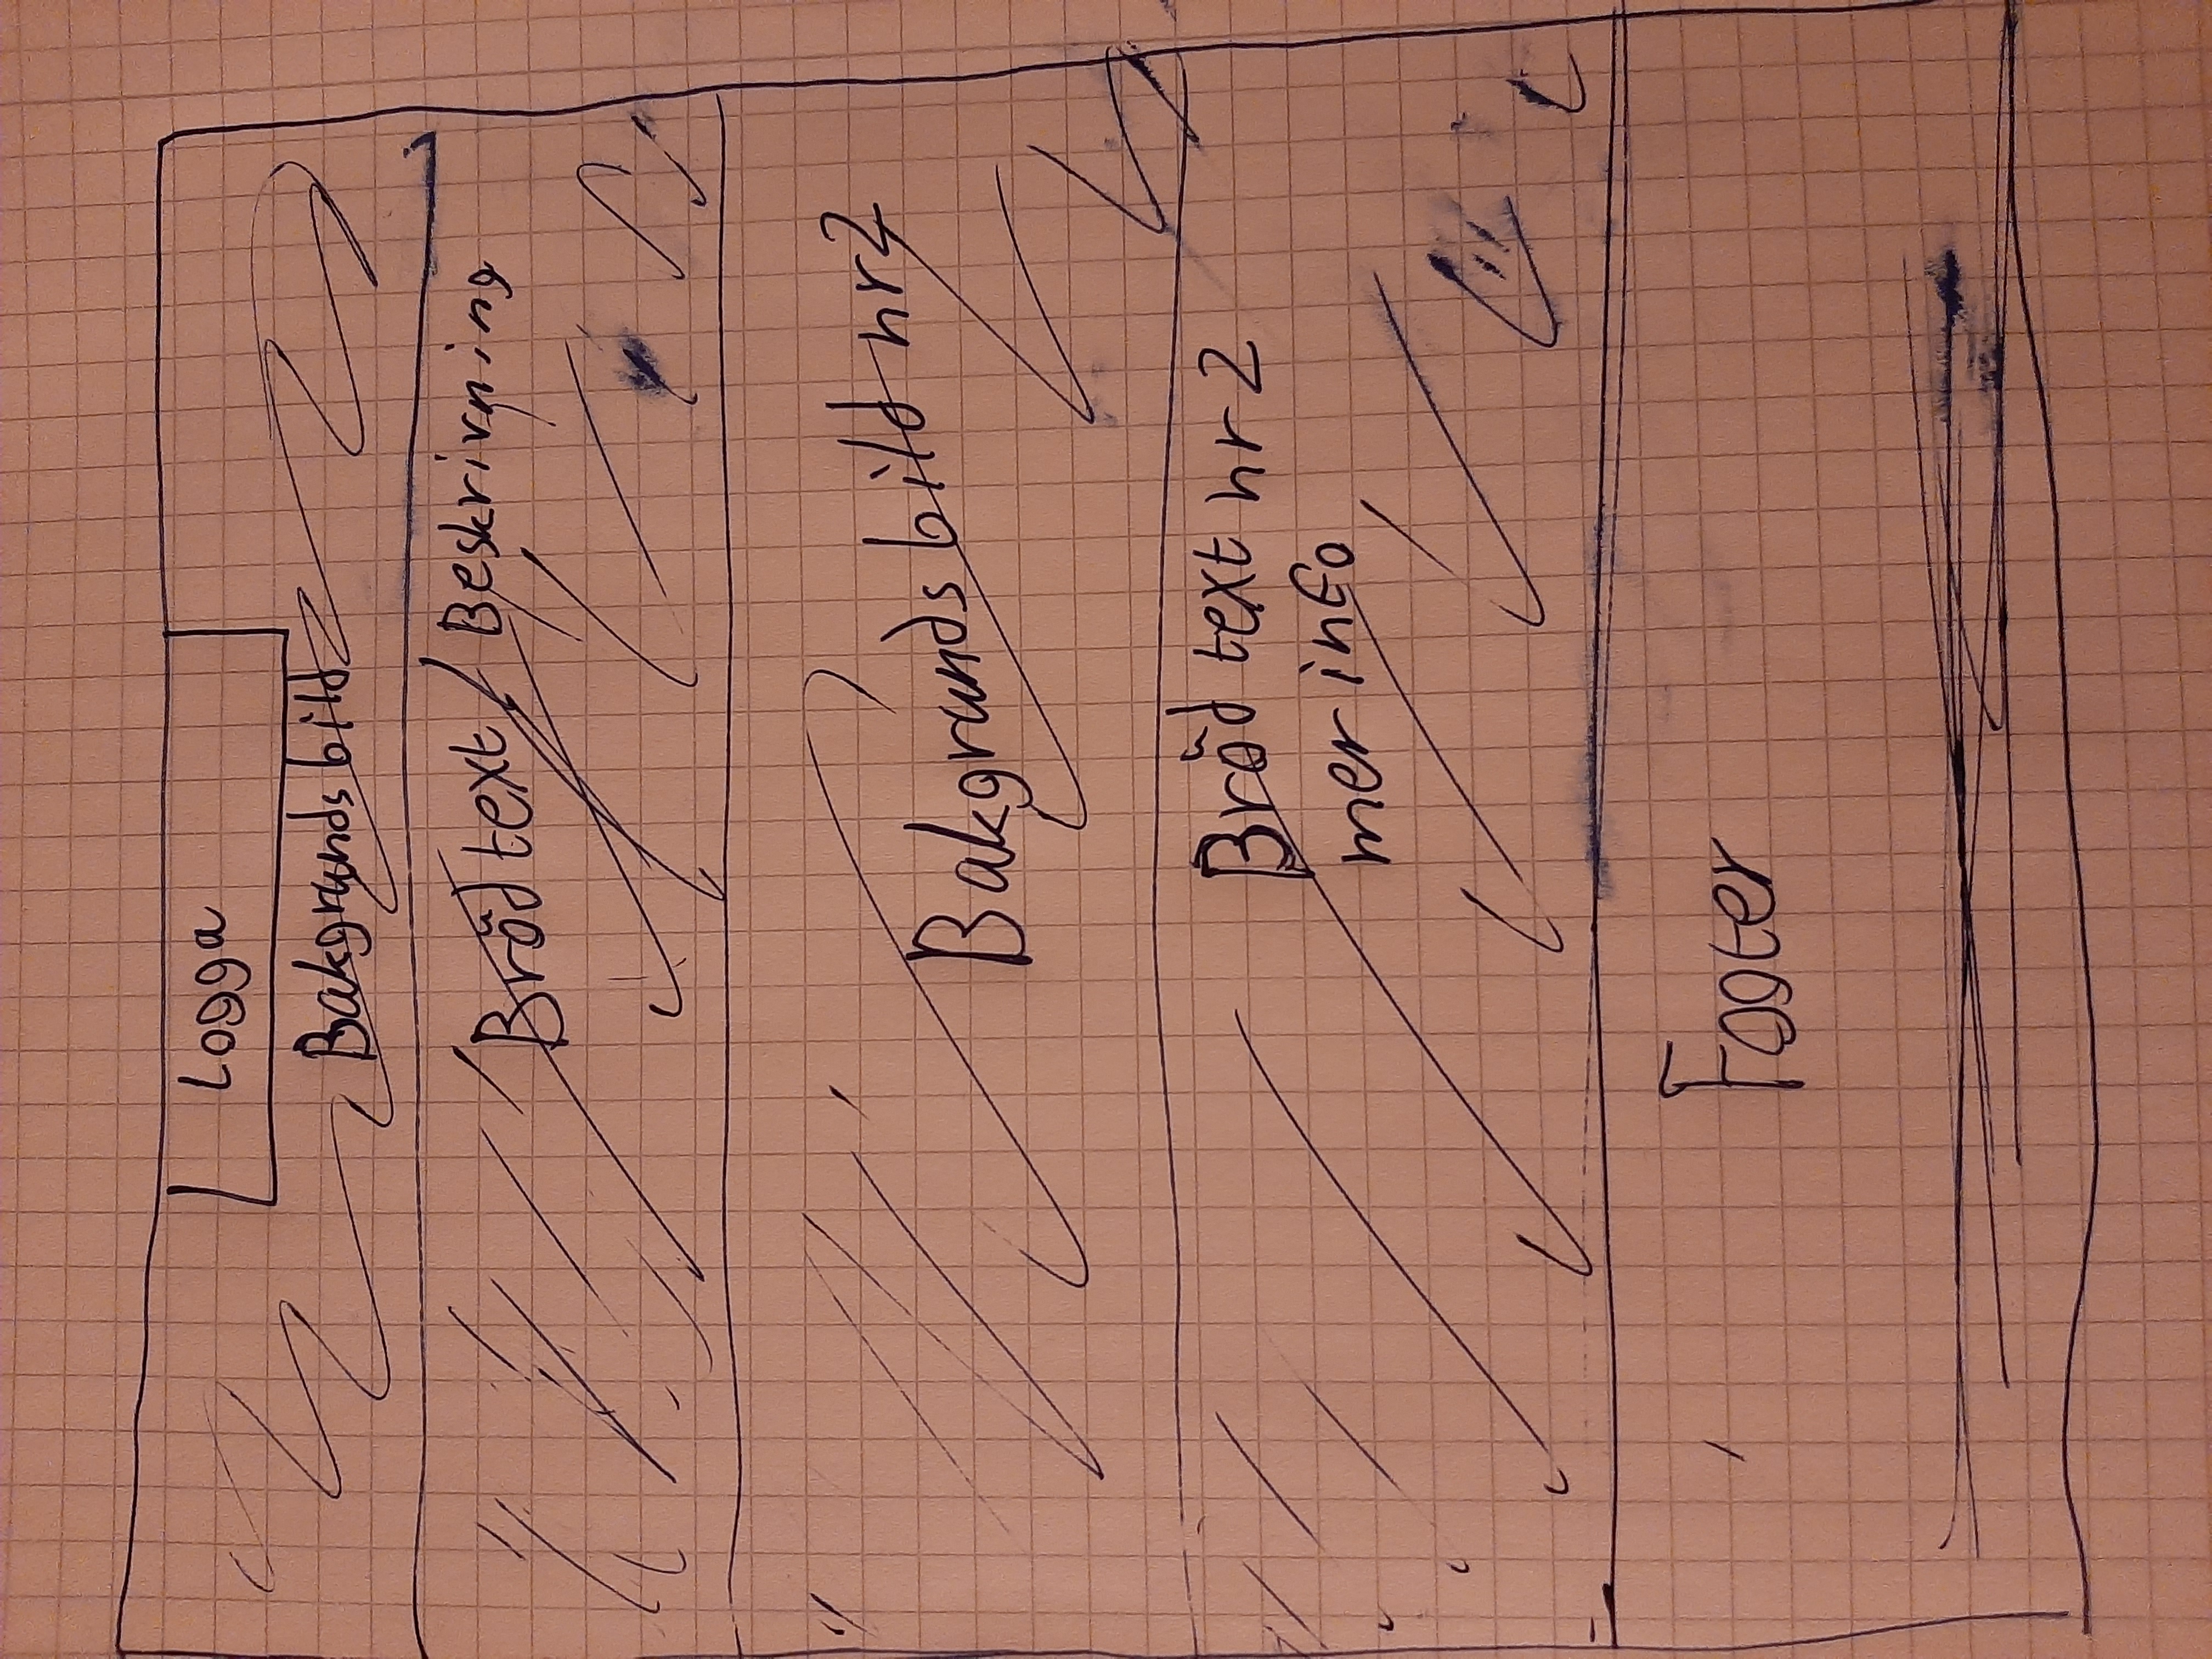 Logga
Bakgrundsbild
Brödtext / Beskrivning
Bakgrundsbild nr2
Brödtext nr 2
mer info
Footer